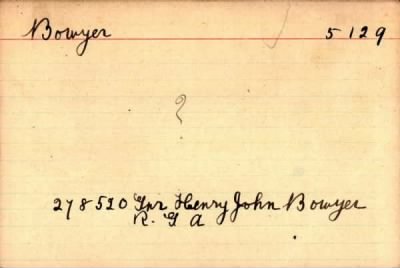 Bowyer 5129
?
278520 Gnr Henry John Bowyer
R. G A